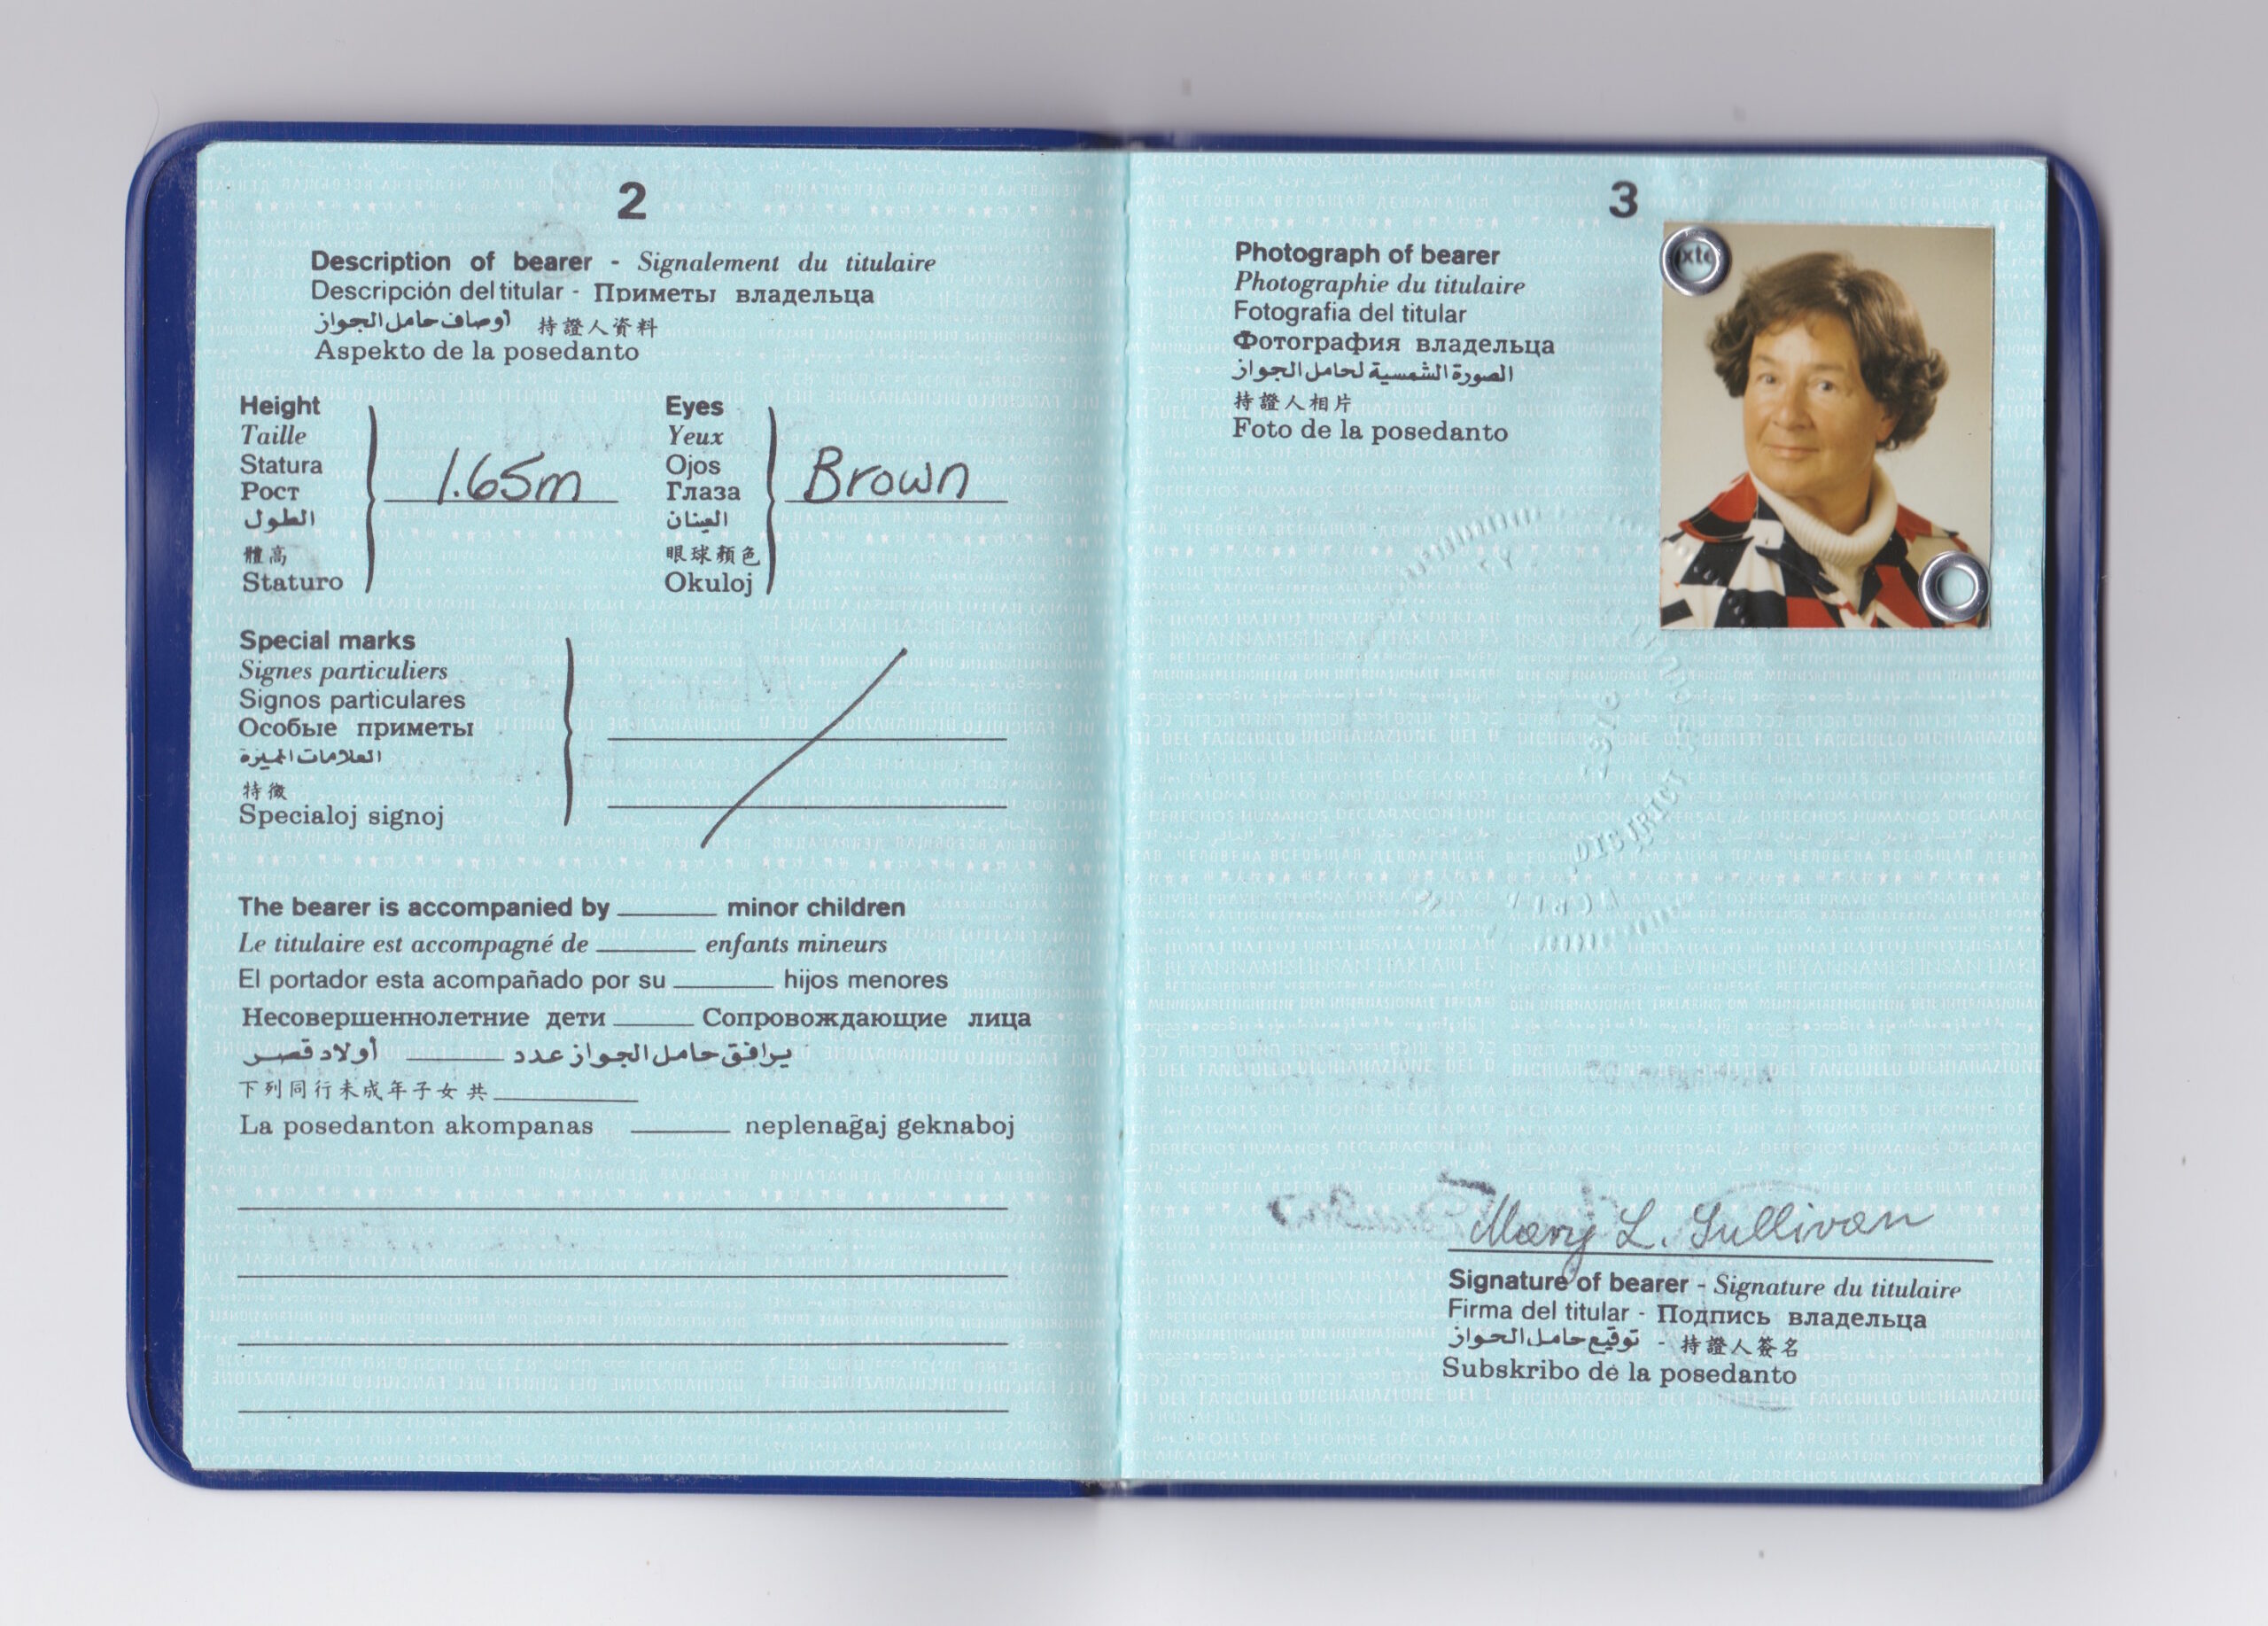 2
Description of bearer - Signalement du titulaire
Descripción del titular - Приметы владельца
أوصاف حامل الجواز 持證人資料
Aspekto de la posedanto
Height
Taille
Statura
Рост
الطول
體高
Staturo
1.65m
Eyes
Yeux
Ojos
Глаза
العينان
眼球顏色
Okuloj
Brown
Special marks
Signes particuliers
Signos particulares
Особые приметы
العلامات المميزة
特徵
Specialoj signoj
The bearer is accompanied by ______ minor children
Le titulaire est accompagné de ______ enfants mineurs
El portador esta acompañado por su ______ hijos menores
Несовершеннолетние дети ______ Сопровождающие лица
يرافق حامل الجواز عدد ______ أولاد قصر
下列同行未成年子女共______
La posedanton akompanas ______ neplenaĝaj geknaboj
3
Photograph of bearer
Photographie du titulaire
Fotografia del titular
Фотография владельца
الصورة الشمسية لحامل الجواز
持證人相片
Foto de la posedanto
Mary L. Sullivan
Signature of bearer - Signature du titulaire
Firma del titular - Подпись владельца
توقيع حامل الجواز - 持證人簽名
Subskribo de la posedanto